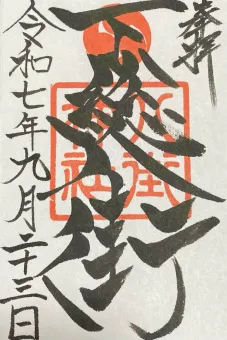 奉拝
下総八街
八街
神社
令和七年九月二十三日